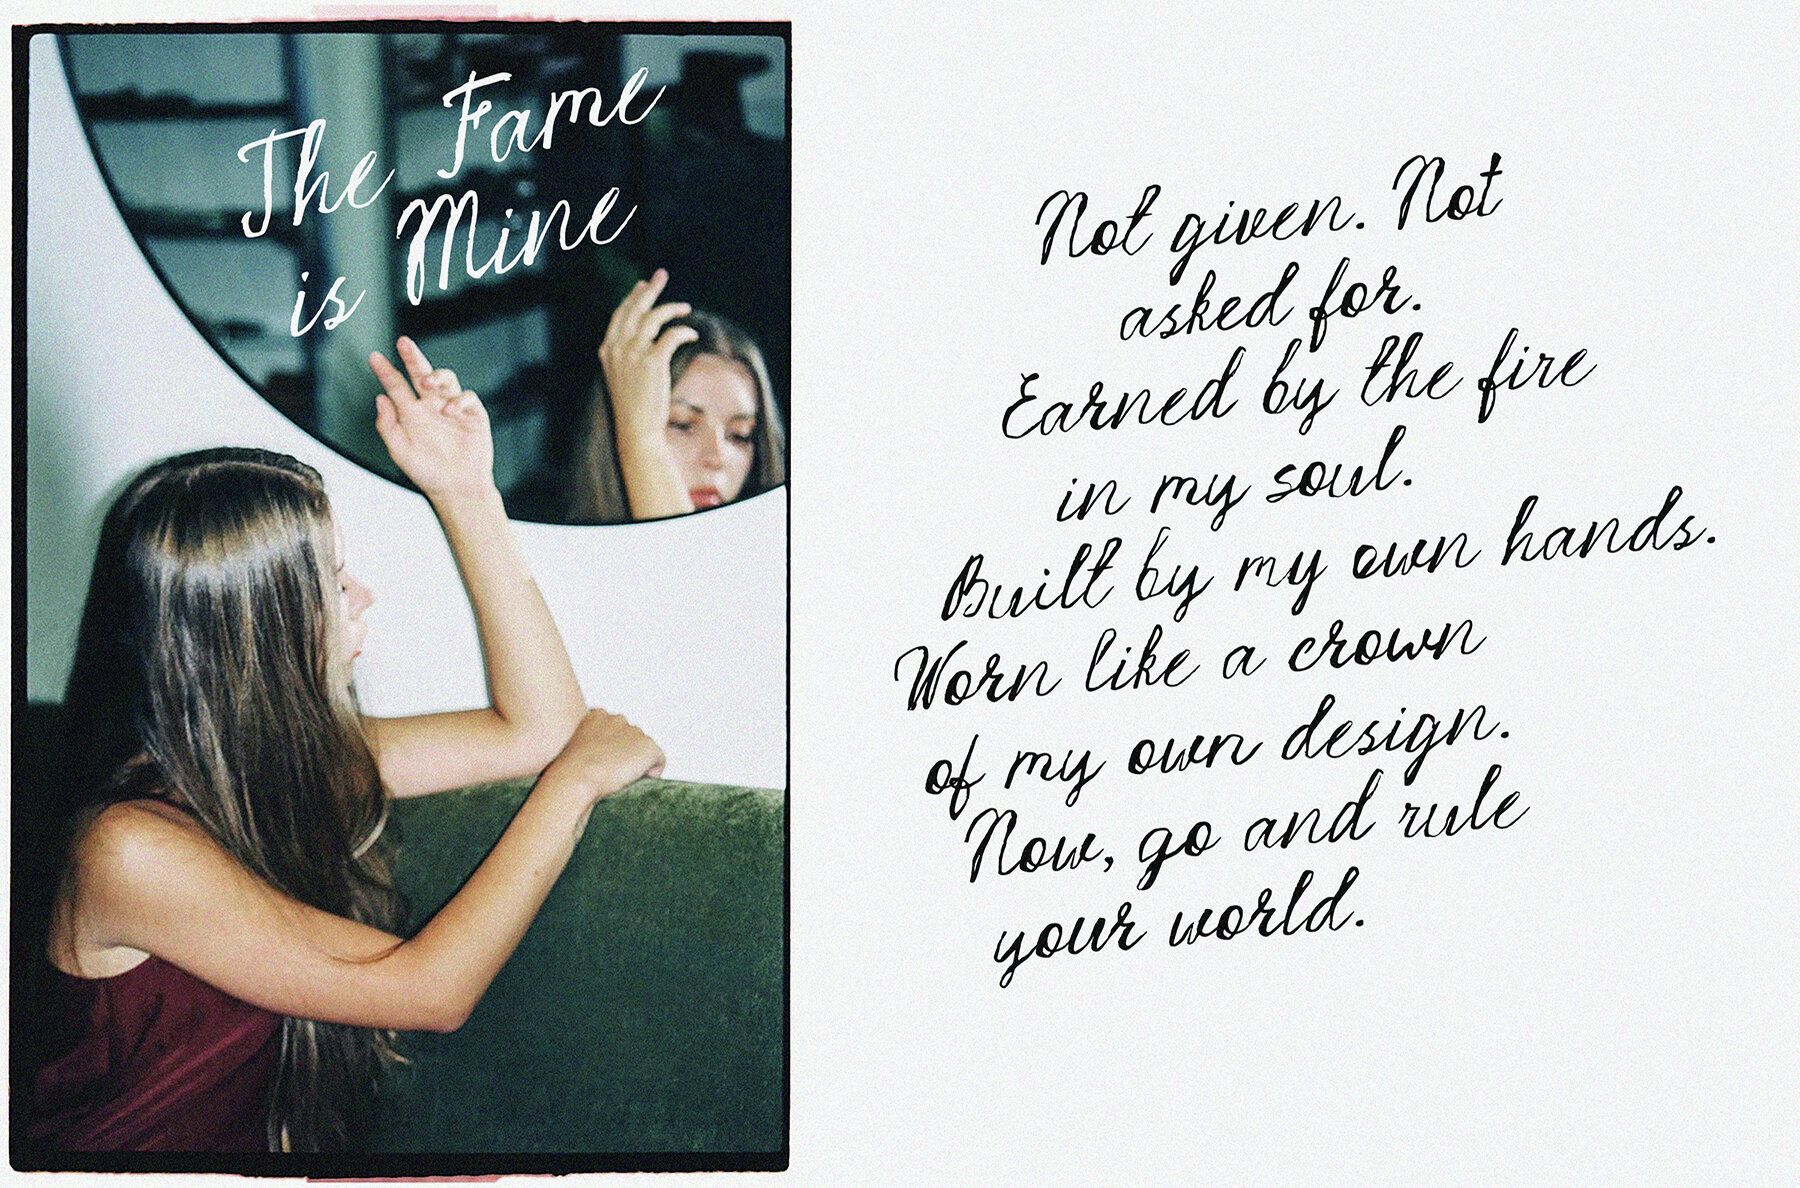 The Fame
is Mine
Not given. Not
asked for.
Earned by the fire
in my soul.
Built by my own hands.
Worn like a crown
of my own design.
Now, go and rule
your world.